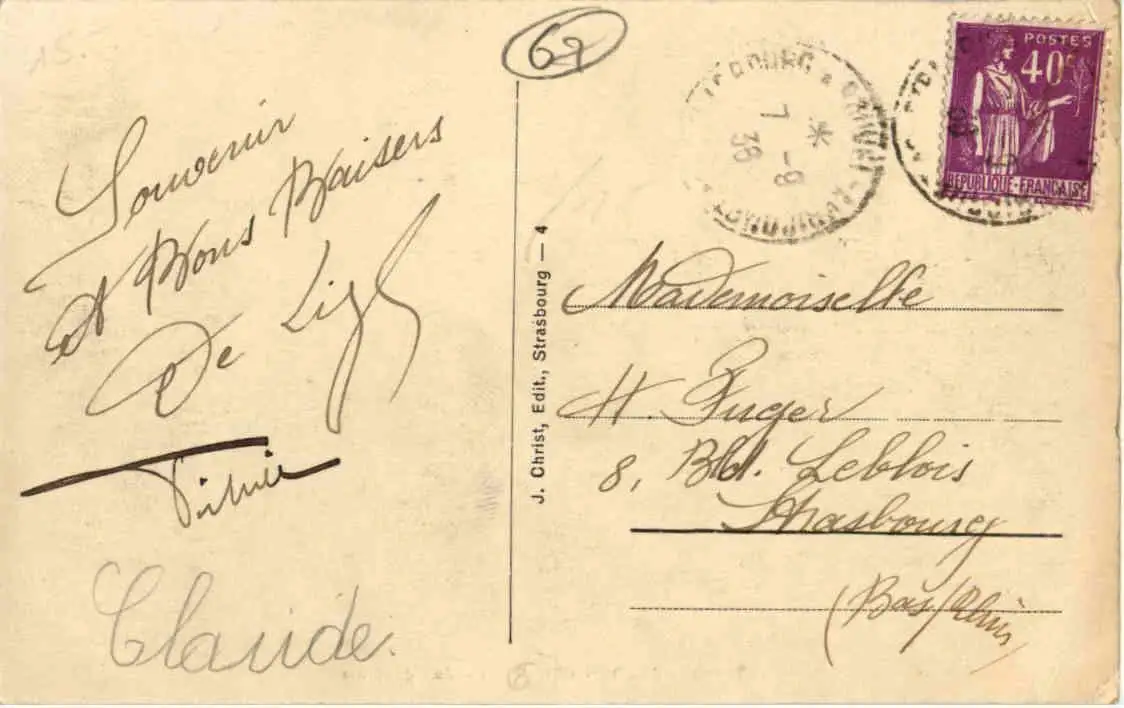 15.-
Souvenir
et Bons Baisers
De
Claude.
J. Christ, Edit., Strasbourg — 4
69
7-9
36
POSTES
40c
REPUBLIQUE-FRANÇAISE
Mademoiselle
H. Fuger
8, Bld. Leblois
Strasbourg
(Bas/Rhin)